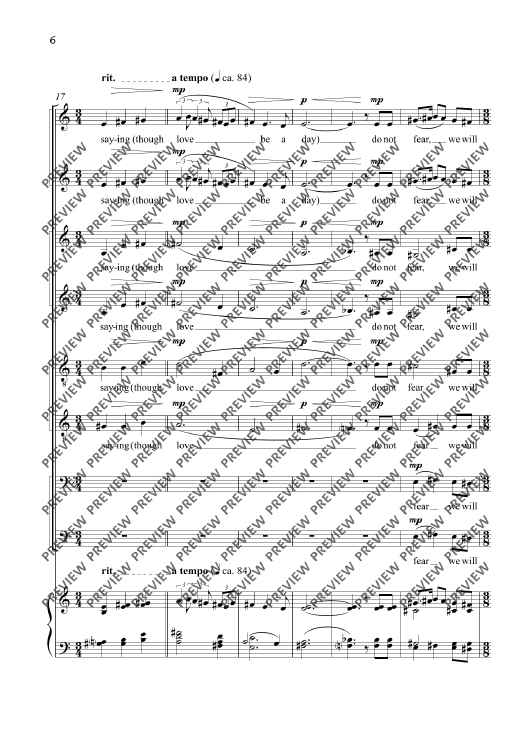 6
rit. a tempo (♩ ca. 84)
17
mp p mp
say-ing (though love be a day) do not fear, we will
mp p mp
say-ing (though love be a day) do not fear, we will
mp p mp
say-ing (though love do not fear, we will
mp p mp
say-ing (though love do not fear, we will
mp p mp
say-ing (though love do not fear we will
mp p mp
say-ing (though love do not fear we will
mp
fear we will
mp
fear we will
rit. a tempo (♩ ca. 84)
PREVIEW PREVIEW PREVIEW PREVIEW PREVIEW PREVIEW PREVIEW PREVIEW